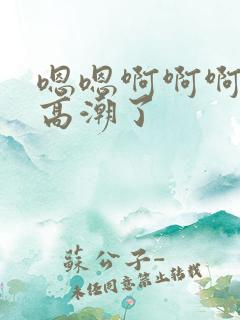 嗯嗯啊啊啊
高潮了
蘇公子-
未经同意禁止转载